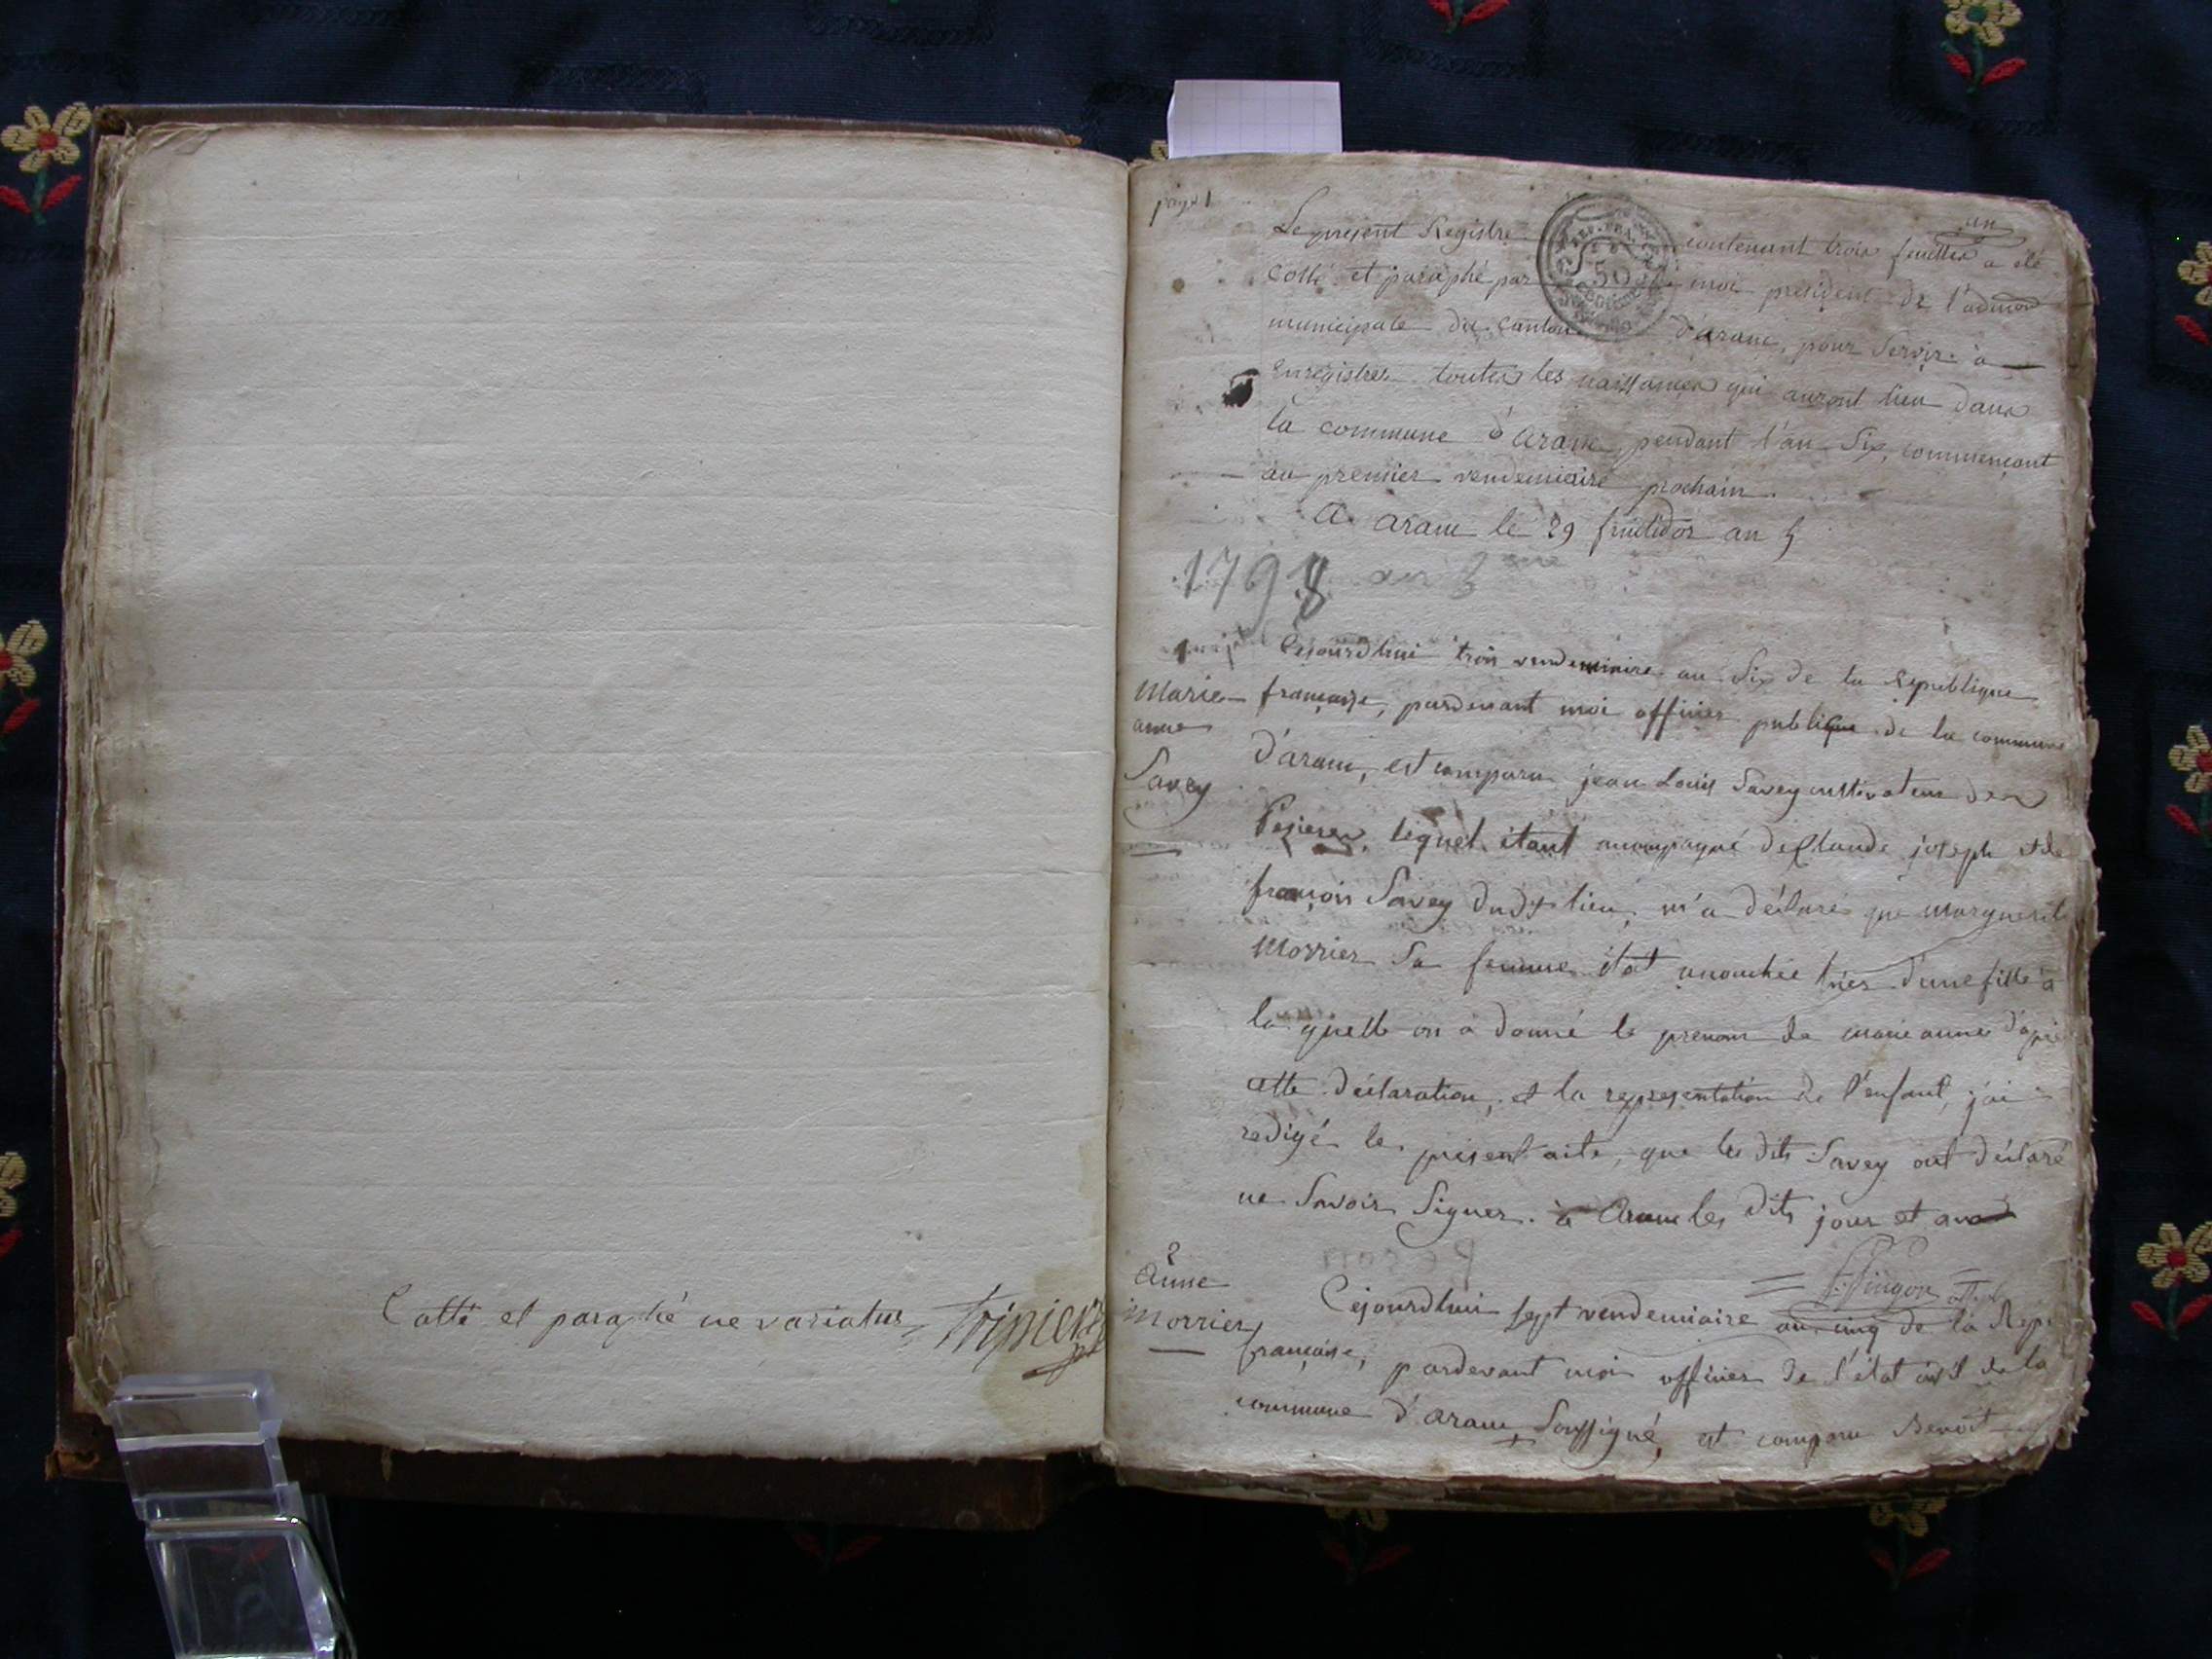 Cotté et paraphé ne variatur
page 1
un
Le present Registre contenant trois feuilles a été
Cotté et paraphé par moi president de l'admon
municipale du canton d'aranc, pour Servir à
enregistrer toutes les naissances qui auront lieu dans
la commune d'aranc, pendant l'an Six, commençant
au premier vendemiaire prochain.
A aranc le 29 fructidor an 5
REP. FRA.
50
1798
1
Cejourd'hui trois vendemiaire an Six de la Republique
Marie
anne
Savey
française, pardevant moi officier publique de la commune
d'aranc, est comparu jean Louis Savey cultivateur des
lequel étant accompagné de Claude joseph et de
françois Savey dudt lieu, m'a déclaré que marguerite
Morrier Sa femme étot accouchée hier d'une fille à
la quelle on a donné le prenom de marie anne d'après
cette déclaration, et la representation de l'enfant, j'ai
redigé le présent acte, que les dits Savey ont déclaré
ne Savoir Signer. à Aranc les dits jour et an
2
Anne
Morrier
Cejourd'hui sept vendemiaire an cinq de la Rep.
française, pardevant moi officier de l'état civil de la
commune d'aranc Soussigné, est comparu Benoit